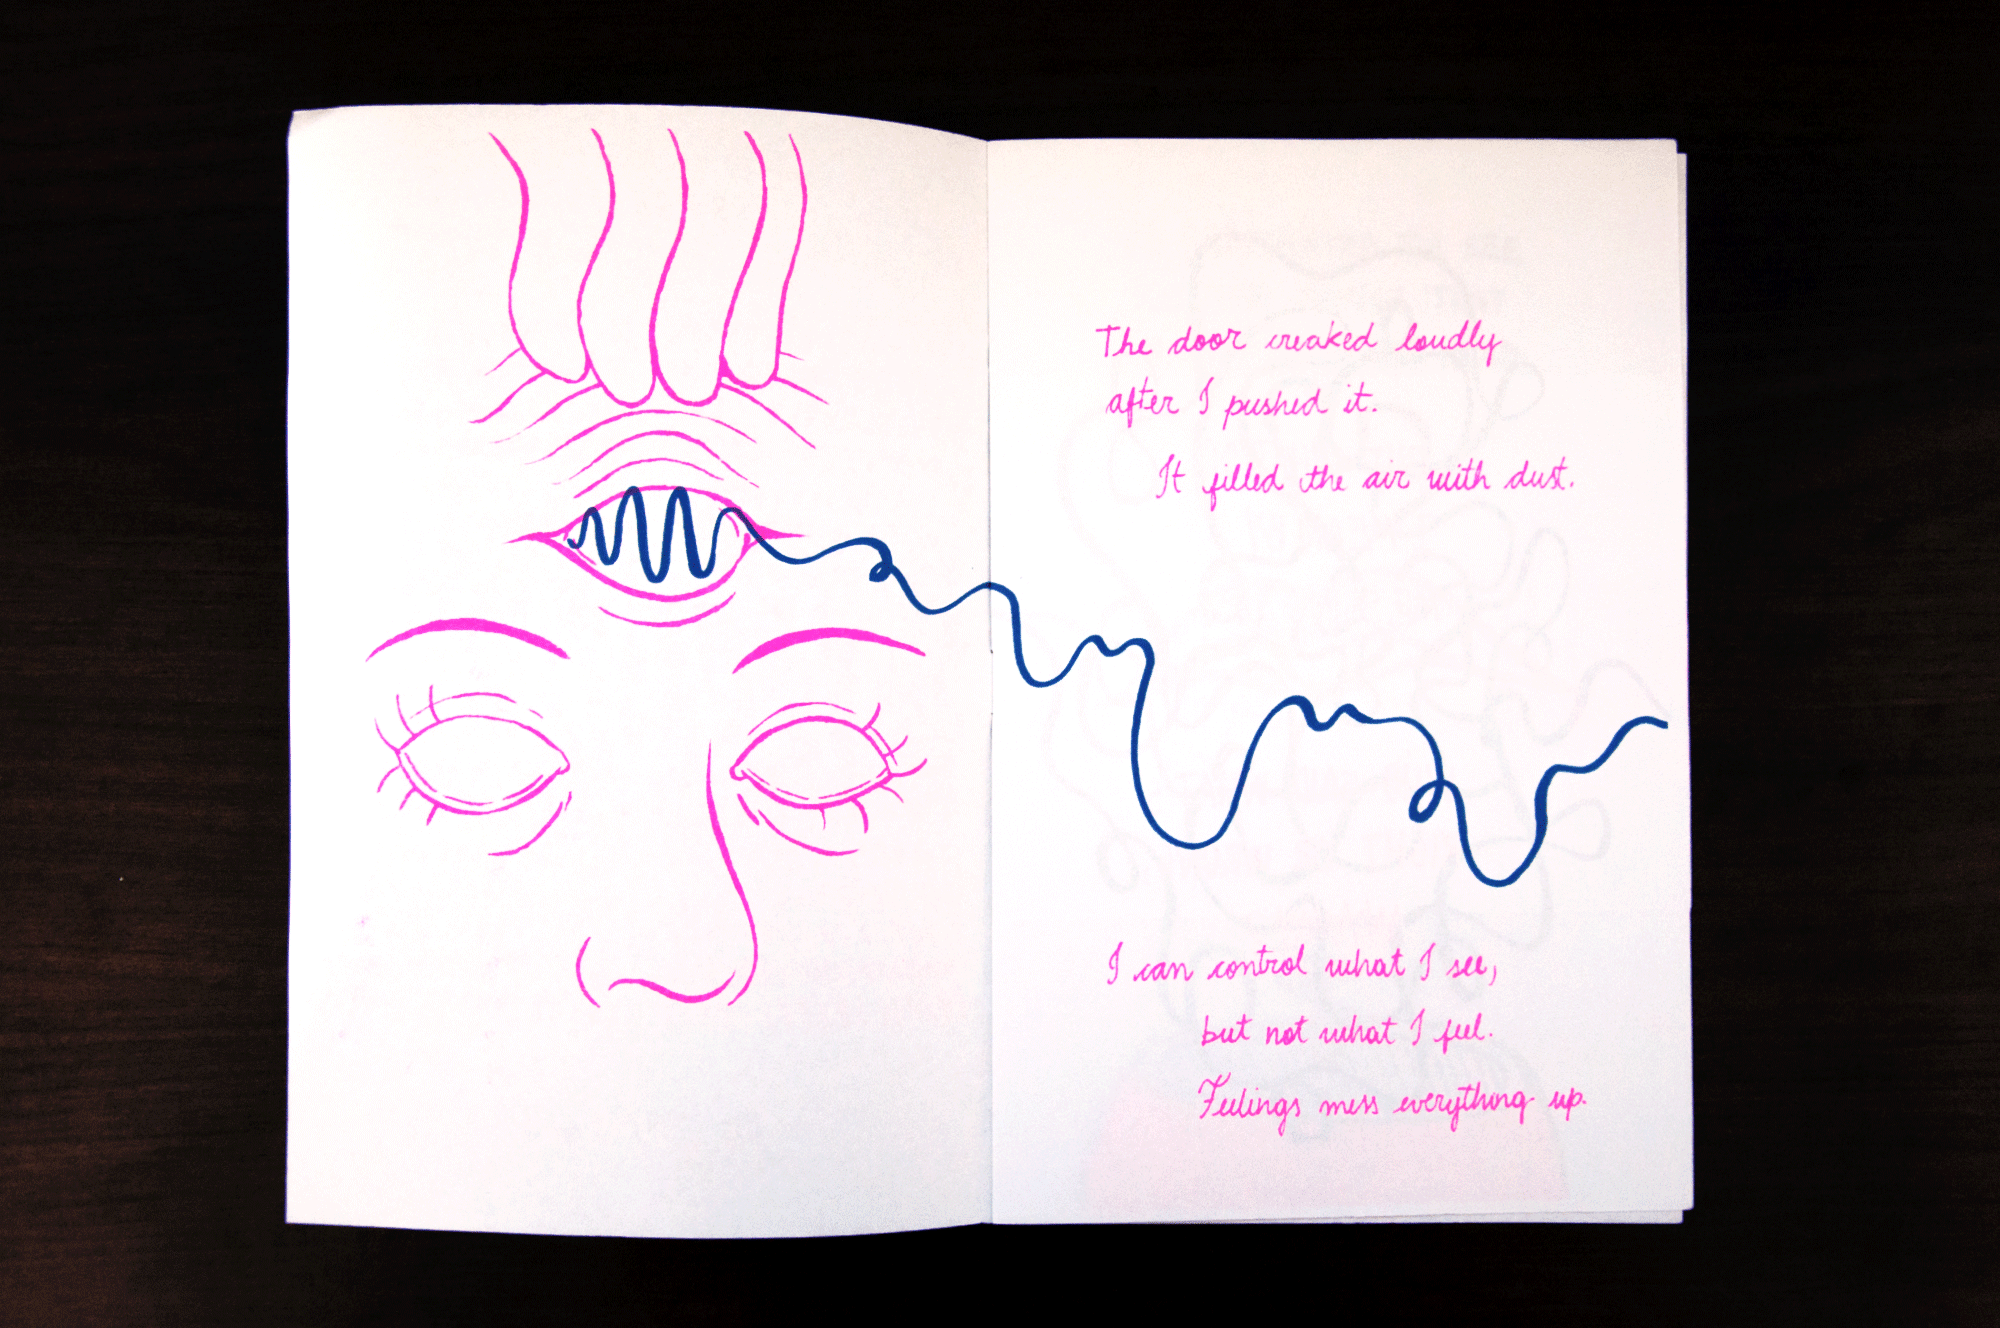 The door creaked loudly
after I pushed it.
It filled the air with dust.
I can control what I see,
but not what I feel.
Feelings mess everything up.